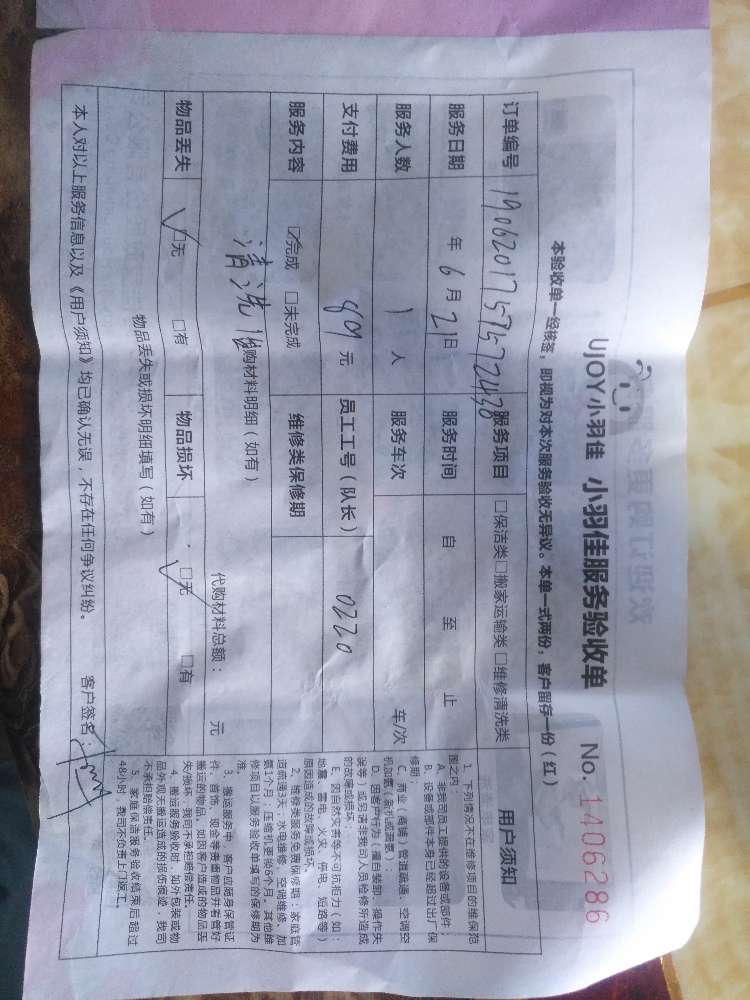 UJOY小羽佳 小羽佳服务验收单 No. 1406286
本验收单一经核签,即视为对本次服务验收无异议。本单一式两份,客户留存一份(红)
订单编号 1906201757572438 服务项目 □保洁类□搬家运输类□维修清洗类
服务日期 年 6 月 21 日 服务时间 自 至 止
服务人数 1 人 服务车次 车/次
支付费用 元 员工工号(队长) 0220
服务内容 ☑完成 □未完成 维修类保修期
清洗
购材料明细(如有)
代购材料总额: 元
物品丢失 ☑无 □有 物品损坏 ☑无 □有
物品丢失或损坏明细填写(如有)
本人对以上服务信息以及《用户须知》均已确认无误,不存在任何争议纠纷。 客户签名:
用户须知
1、下列情况不在维修项目的维保范
围之内:
A、非我司员工提供的设备或部件;
B、设备或部件本身已经超过出厂保
修期;
C、商业(商铺)管道疏通、空调空
机加氨(氯补或满氨);
D、因客户行为(擅自装卸、操作失
误等)或另请非我司人员检修所造成
的故障或损坏;
E、因自然灾害等不可抗拒力(如:
地震、雷电、火灾、停电、短路等)
原因造成的故障或损坏。
2、维修类服务免费保修期:家庭管
道疏通3天;水电维修、空调维修、加
氨1个月;压缩机更换6个月;其他维
修项目以服务验收单填写的保修期为
准。
3、搬运服务中,客户应随身保管证
件、首饰、现金等贵重物品并看管好
搬运的物品。如因客户造成的物品丢
失/损坏,我司不承担赔偿责任。
4、搬运服务验收时,如外包装或物
品外观无搬运造成的损伤痕迹,我司
不承担赔偿责任。
5、家庭保洁服务验收结束后超过
48小时,我司不负责上门返工。